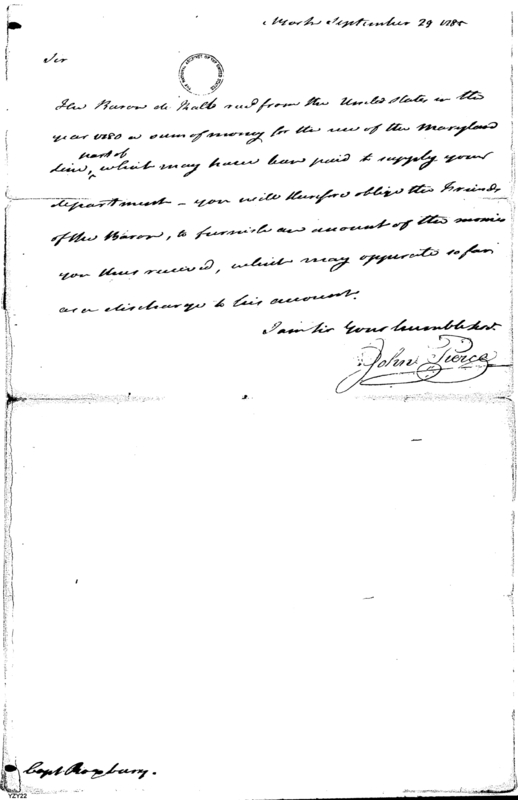 York September 29 1785
Sir
The Baron de Kalb recd from the United States in the
year 1780 a sum of money for the use of the Maryland
part of
line, which may have been paid to supply your
department – you will therefore oblige the Friends
of the Baron, to furnish an account of the monies
you thus received, which may opperate so far
as a discharge to his account.
I am Sir Your humble Servt.
John Pierce
Capt Roxbury.
YZY22